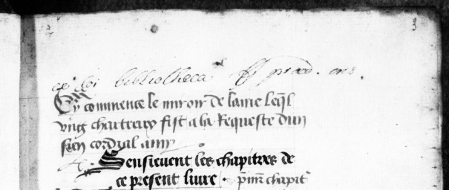 3
ex bibliotheca ff. praed.
Cy commence le miroir de lame leql
ung chartreux fist a la Requeste dun
sien cordial amy
Sensieuent les chapitres de
ce present liure. pim chapit